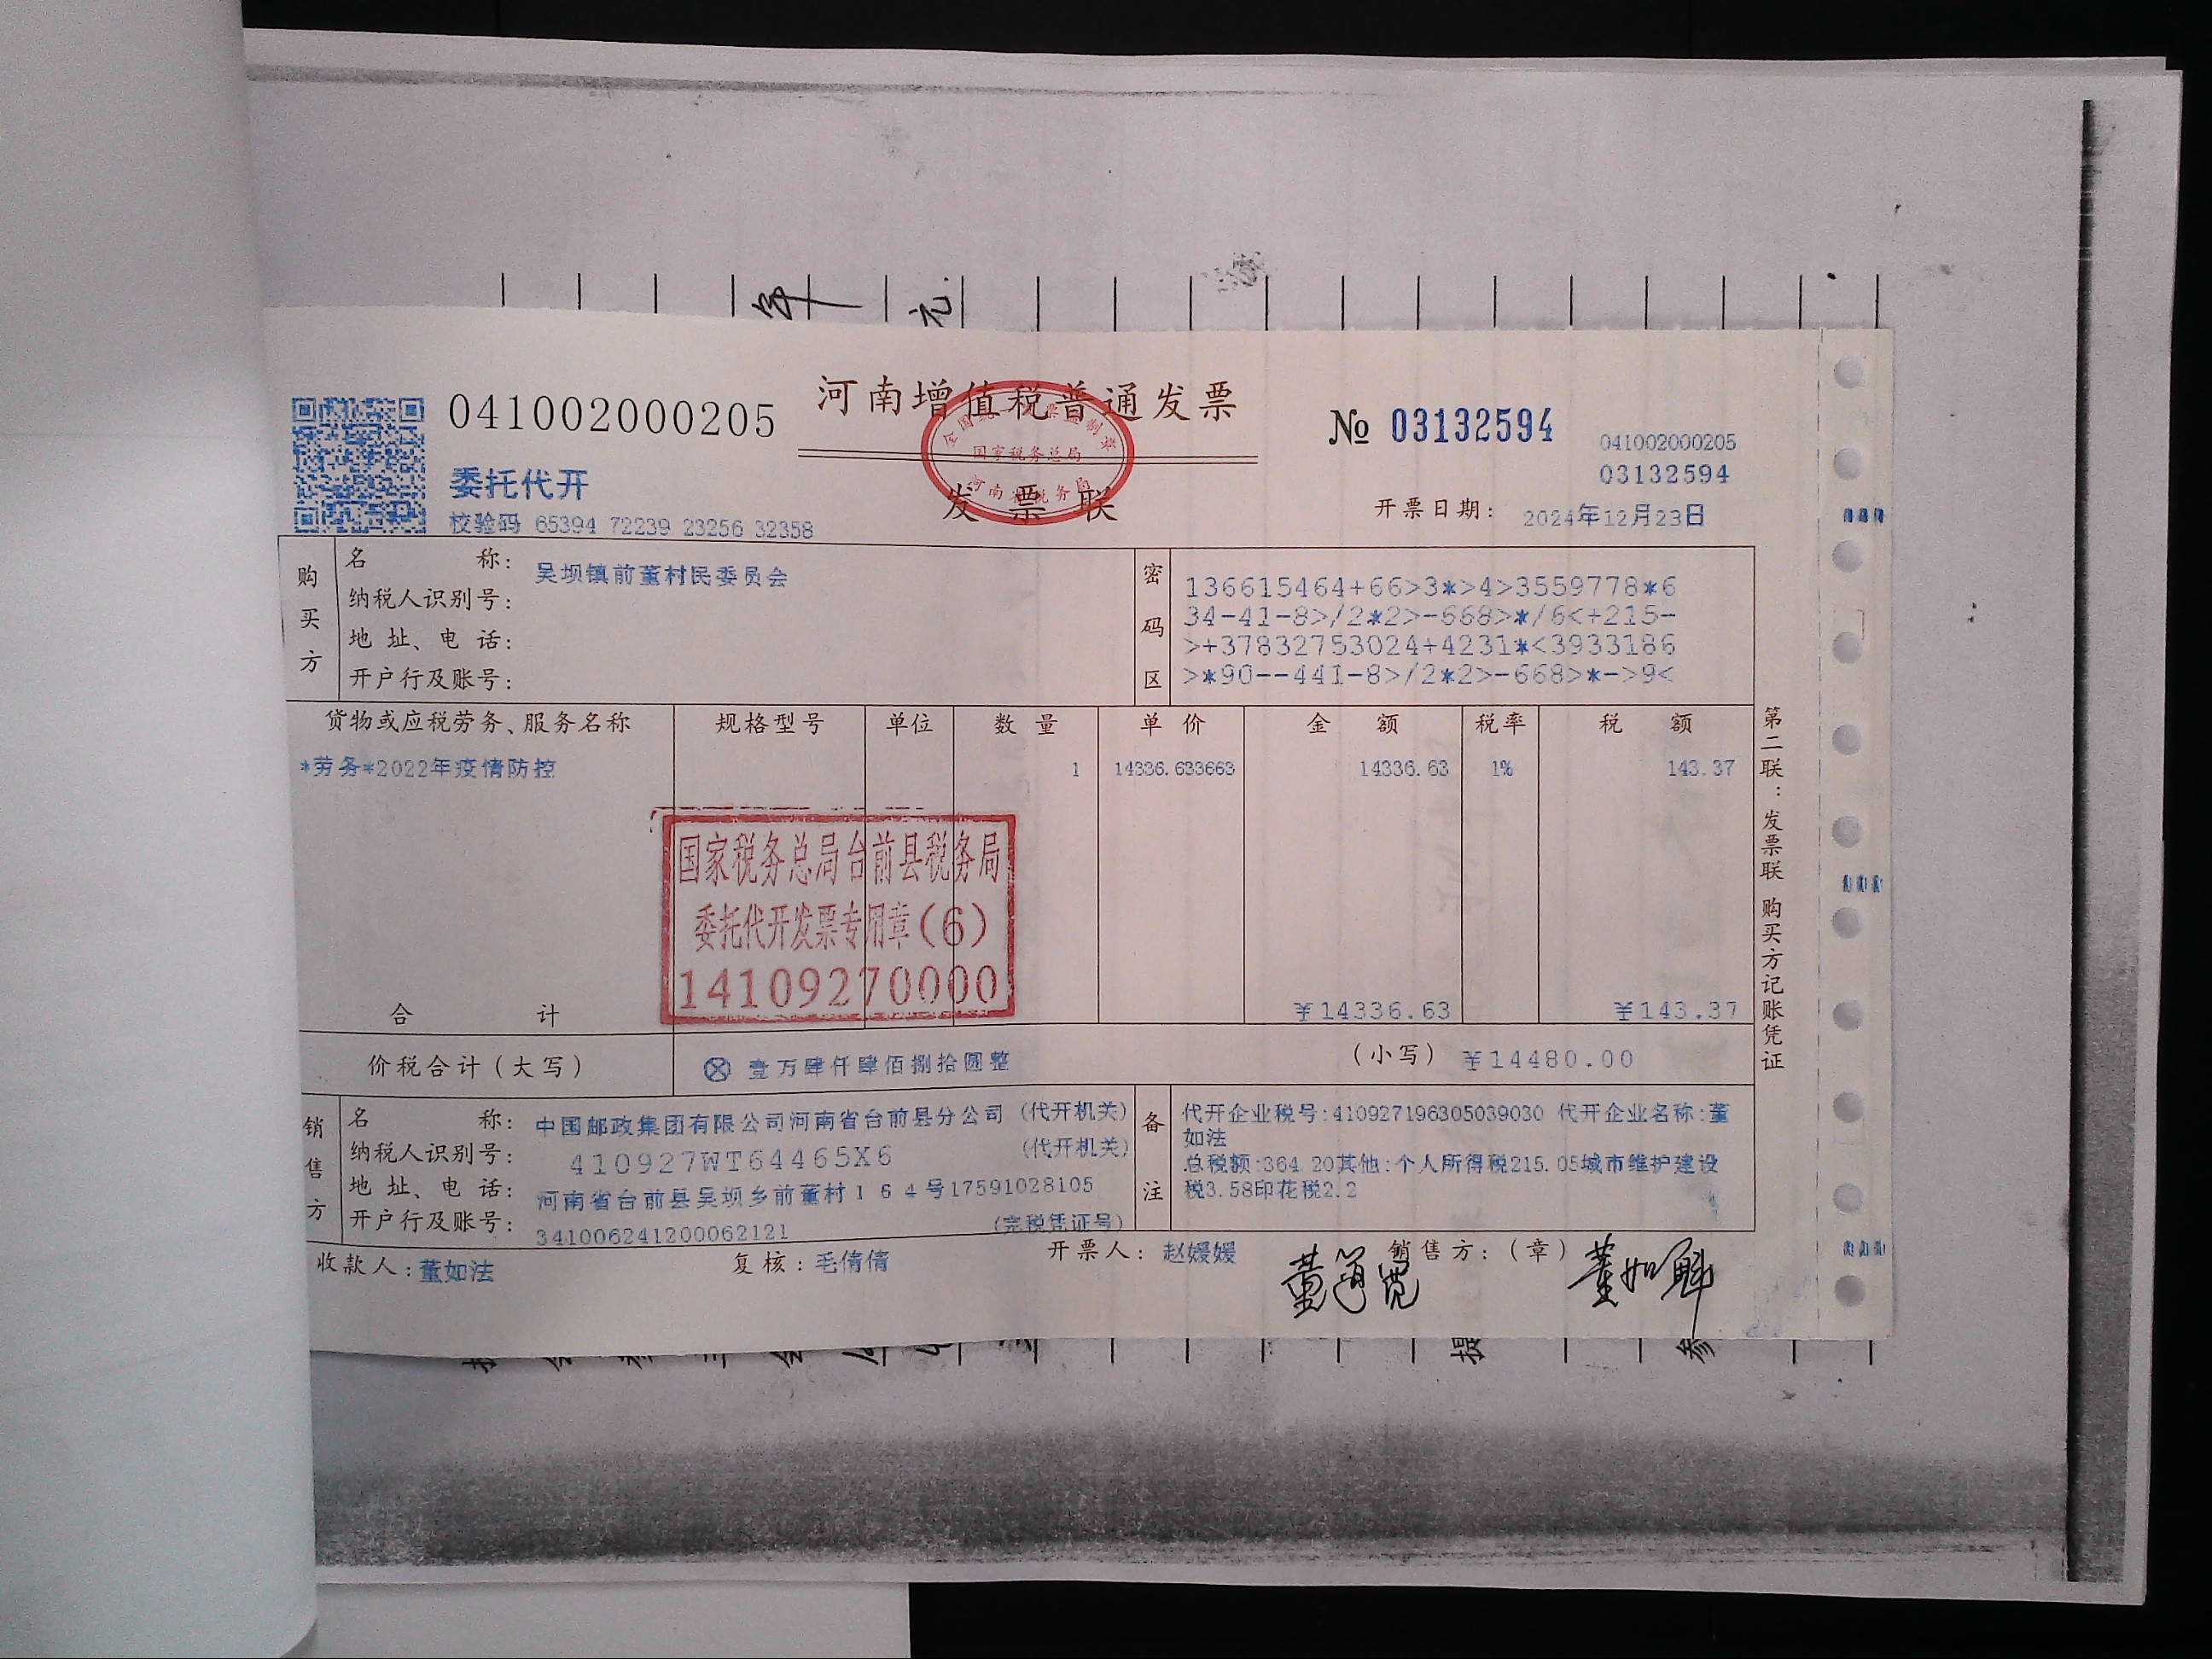 041002000205
河南增值税普通发票
No 03132594
041002000205
03132594
委托代开
国家税务总局
发票联
校验码 65394 72239 23256 32358
开票日期： 2024年12月23日
购买方
名称： 吴坝镇前董村民委员会
纳税人识别号：
地址、电话：
开户行及账号：
密码区
136615464+66>3*>4>3559778*6
34-41-8>/2*2>-668>*/6<+215-
>+37832753024+4231*<3933186
>*90--441-8>/2*2>-668>*->9<
货物或应税劳务、服务名称 规格型号 单位 数量 单价 金额 税率 税额
*劳务*2022年疫情防控 1 14336.633663 14336.63 1% 143.37
国家税务总局台前县税务局
委托代开发票专用章(6)
14109270000
合计 ¥14336.63 ¥143.37
价税合计（大写） ⊗ 壹万肆仟肆佰捌拾圆整 （小写） ¥14480.00
销售方
名称： 中国邮政集团有限公司河南省台前县分公司 (代开机关)
纳税人识别号： 410927WT64465X6 (代开机关)
地址、电话： 河南省台前县吴坝乡前董村１６４号17591028105
开户行及账号： 341006241200062121 (完税凭证号)
备注
代开企业税号:410927196305039030 代开企业名称:董
如法
总税额:364.20其他:个人所得税215.05城市维护建设
税3.58印花税2.2
收款人：董如法 复核：毛倩倩 开票人： 赵媛媛 销售方：（章）
第二联：发票联 购买方记账凭证